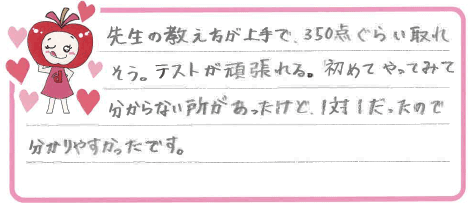 先生の教え方が上手で、350点ぐらい取れ
そう。テストが頑張れる。初めてやってみて
分からない所があったけど、1対1だったので
分かりやすかったです。